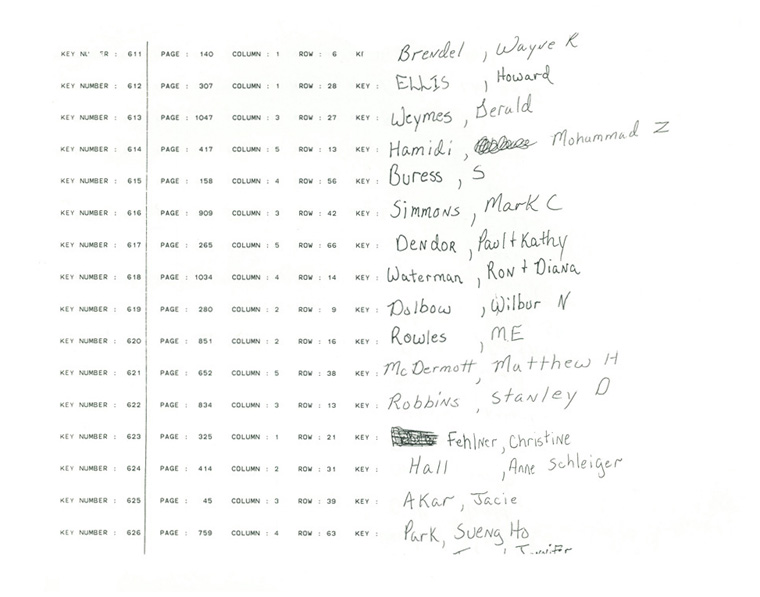 KEY NUMBER : 611 PAGE : 140 COLUMN : 1 ROW : 6 Brendel , Wayne R
KEY NUMBER : 612 PAGE : 307 COLUMN : 1 ROW : 28 KEY : ELLIS , Howard
KEY NUMBER : 613 PAGE : 1047 COLUMN : 3 ROW : 27 KEY : Weymes , Derald
KEY NUMBER : 614 PAGE : 417 COLUMN : 5 ROW : 13 KEY : Hamidi , Mohummad Z
KEY NUMBER : 615 PAGE : 158 COLUMN : 4 ROW : 56 KEY : Buress , S
KEY NUMBER : 616 PAGE : 909 COLUMN : 3 ROW : 42 KEY : Simmons , Mark C
KEY NUMBER : 617 PAGE : 265 COLUMN : 5 ROW : 66 KEY : Dendor , Paul + Kathy
KEY NUMBER : 618 PAGE : 1034 COLUMN : 4 ROW : 14 KEY : Waterman , Ron + Diana
KEY NUMBER : 619 PAGE : 280 COLUMN : 2 ROW : 9 KEY : Dalbow , Wilbur N
KEY NUMBER : 620 PAGE : 851 COLUMN : 2 ROW : 16 KEY : Rowles , ME
KEY NUMBER : 621 PAGE : 652 COLUMN : 5 ROW : 38 KEY : McDermott , Matthew H
KEY NUMBER : 622 PAGE : 834 COLUMN : 3 ROW : 13 KEY : Robbins , Stanley D
KEY NUMBER : 623 PAGE : 325 COLUMN : 1 ROW : 21 KEY : Fehlner , Christine
KEY NUMBER : 624 PAGE : 414 COLUMN : 2 ROW : 31 KEY : Hall , Anne Schleiger
KEY NUMBER : 625 PAGE : 45 COLUMN : 3 ROW : 39 KEY : Akar , Jacie
KEY NUMBER : 626 PAGE : 759 COLUMN : 4 ROW : 63 KEY : Park , Sueng Ho